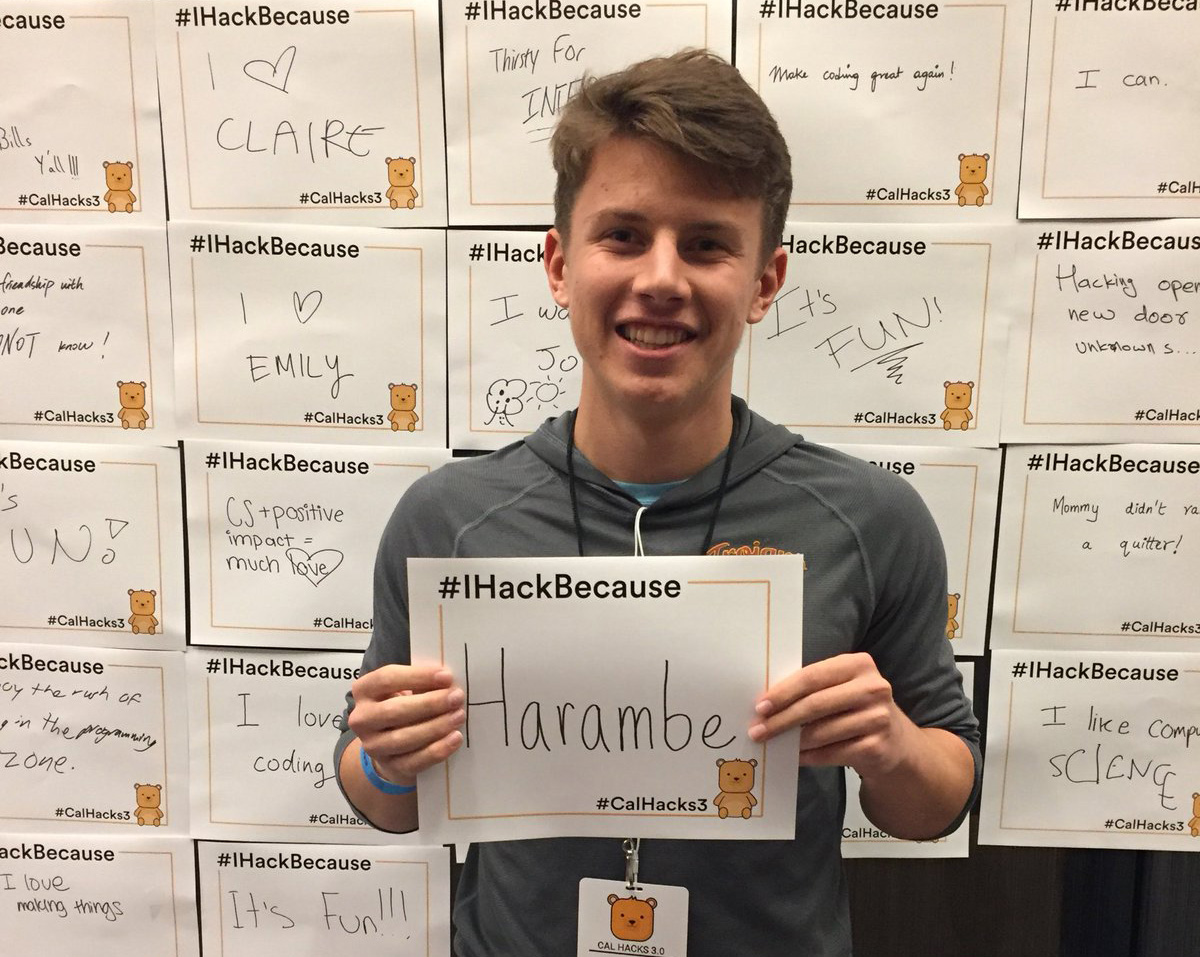 cause
Bills
Y'all!!!
#CalHacks3
#IHackBecause
I ♡
CLAIRE
#CalHacks3
#IHackBecause
Thirsty For
#IHackBecause
Make coding great again!
#CalHacks3
#IHackBeca
I can.
#CalH
Because
friendship with
one
NOT know!
#CalHacks3
#IHackBecause
I ♡
EMILY
#CalHacks3
#IHack
I
Jo
HackBecause
It's
FUN!
#CalHacks3
#IHackBecaus
Hacking open
new door
unknowns...
#CalHack
kBecause
's
UN!
#CalHacks3
#IHackBecause
CS+positive
impact =
much love
#CalHack
use
#IHackBecause
Mommy didn't ra
a quitter!
#CalHacks3
#IHackBecause
Harambe
#CalHacks3
ckBecause
oy the rush of
g in the programming
zone.
#CalHacks3
#IHackBecause
I love
coding
#CalHac
#CalHac
#IHackBecause
I like compu
SCIENCE
#CalHacks3
ackBecause
I love
making things
#IHackBecause
It's Fun!!!
CAL HACKS 3.0